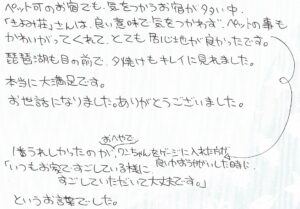 ペット可のお宿でも、気をつかうお宿が多い中、
「きよみ荘」さんは、良い意味で気をつかわず、ペットの事も
かわいがってくれて、とても居心地が良かったです。
琵琶湖も目の前で、夕焼けもキレイに見れました。
本当に大満足です。
お世話になりました。ありがとうございました。
おへやで
1番うれしかったのが、ワンちゃんをゲージに入れた方が
良いかお伺いした時に
「いつもお家ですごしている様に
すごしていただいて大丈夫です。」
というお言葉でした。